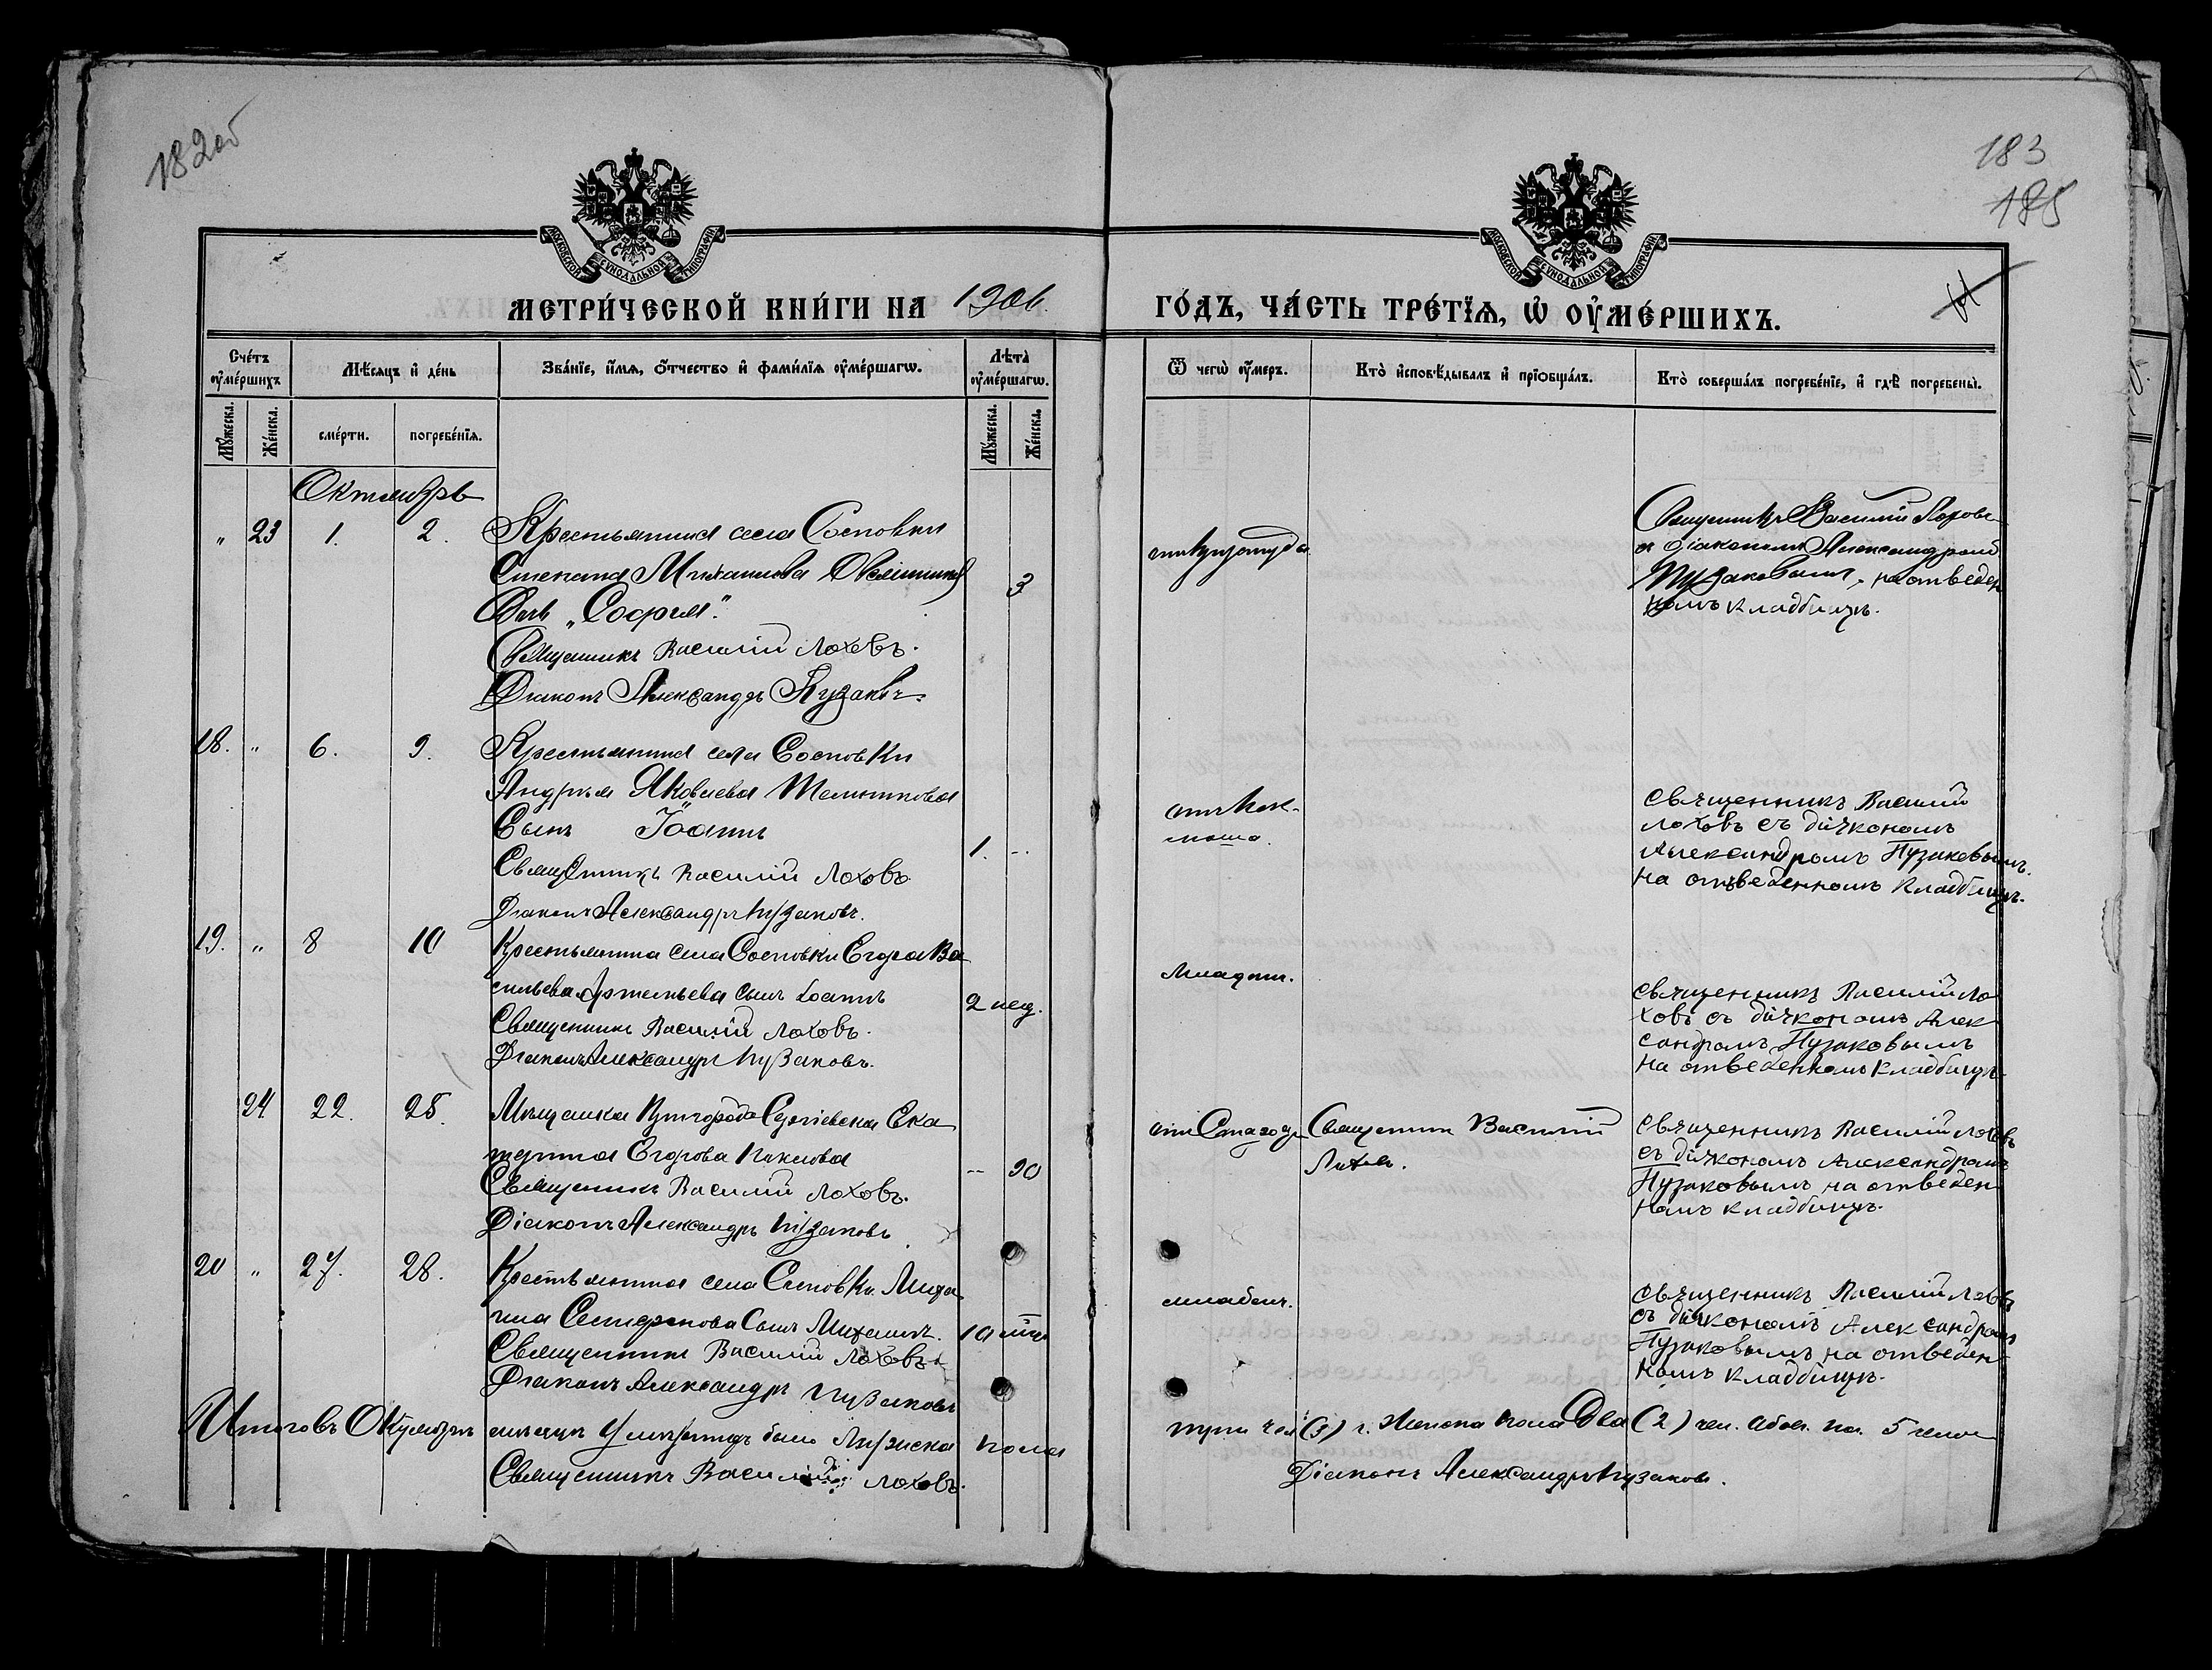 182об
183
185
61
МОСКОВСКОЙ СѴНОДАЛЬНОЙ ТИПОГРАФІИ
МОСКОВСКОЙ СѴНОДАЛЬНОЙ ТИПОГРАФІИ
МЕТРИ́ЧЕСКОЙ КНИ́ГИ НА 1906. ГО́ДЪ, ЧА́СТЬ ТРЕ́ТЇѦ, Ѡ҆ ОУ҆МЕ́РШИХЪ.
Сче́тъ оу҆ме́ршихъ
Мѣ́сяцъ и҆ де́нь
Зва́нїе, и҆́мѧ, ѻ҆́тчество и҆ фами́лїѧ оу҆ме́ршагѡ.
Лѣ́та оу҆ме́ршагѡ.
Ѿ чегѡ̀ оу҆́меръ.
Кто̀ и҆сповѣ́дывалъ и҆ прїобща́лъ.
Кто̀ соверша́лъ погребе́нїе, и҆ гдѣ̀ погребены̀.
Мꙋ́жеска.
Же́нска.
сме́рти.
погребе́нїѧ.
Мꙋ́жеска.
Же́нска.
Октябрь
„ 23 1. 2. Крестьянина села Сосновки
Степана Михайлова
Дочь „Софія".
3
Священникъ Василій Лоховъ.
Діаконъ Александръ Пузаковъ.
Священникъ Василій Лоховъ
съ діакономъ Александромъ
Пузаковымъ, на отведен
номъ кладбищѣ.
18. „ 6. 9. Крестьянина села Сосновки
Андрея Яковлева
Сынъ Іоаннъ
1. „
Священникъ Василій Лоховъ
Діаконъ Александръ Пузаковъ.
отъ Кок-
люша.
Священникъ Василій
Лоховъ съ діакономъ
Александромъ Пузаковымъ.
на отведенномъ кладбищѣ.
19. „ 8 10 Крестьянина села Сосновки Егора Ва
сильева Артемьева сынъ Іоаннъ
2 нед.
Священникъ Василій Лоховъ.
Діаконъ Александръ Пузаковъ.
Священникъ Василій Ло
ховъ съ діакономъ Алек
сандромъ Пузаковымъ
на отведенномъ кладбищѣ
24 22. 25. Мѣщанка Пригорода Сергіевска Ека
терина Егорова
„ 90
Священникъ Василій Лоховъ.
Діаконъ Александръ Пузаковъ
отъ Старости
Священникъ Василій
Лоховъ.
Священникъ Василій Лоховъ
съ діакономъ Александромъ
Пузаковымъ на отведен
номъ кладбищѣ.
20 „ 27. 28. Крестьянина села Сосновки Миха
ила Сынъ Михаилъ.
10
Священникъ Василій Лоховъ
Діаконъ Александръ Пузаковъ
слабост.
Священникъ Василій Лоховъ
съ діакономъ Александромъ
Пузаковымъ на отведен
номъ кладбищѣ.
Итого въ Октябрѣ мѣсяцѣ Умершихъ было Мужска пола три чел (3) г. Женска пола Два (2) чел. Обоег. по. 5 челов
Священникъ Василій Лоховъ.
Діаконъ Александръ Пузаковъ.